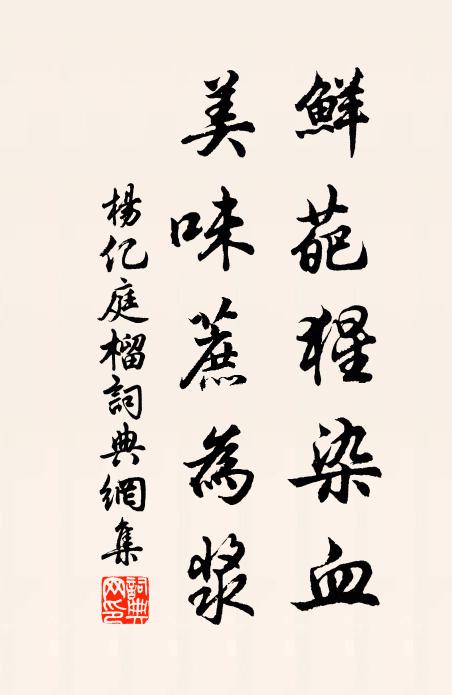 鮮葩猩染血
美味蔗為漿
楊亿庭榴詞典網集
詞典网印